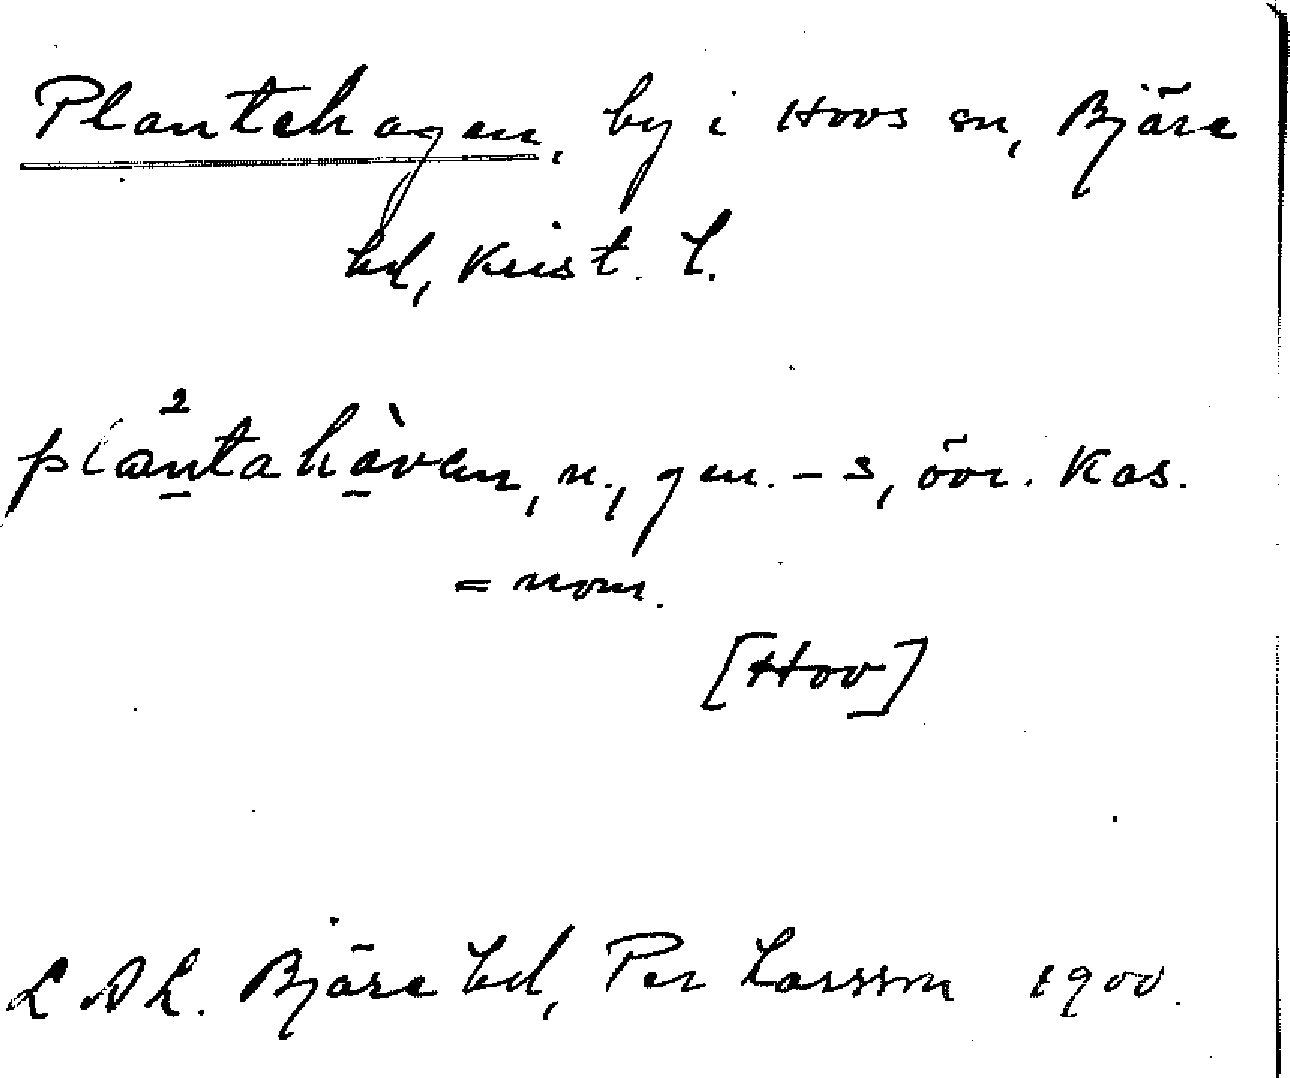 Plantehagen, by i Hovs sn, Bjäre
hd, Krist. l.
pla²ntahàven, n., gen. -s, övr. kas.
= nom.
[Hov]
LDL. Bjäre hd, Per Larsson 1900.